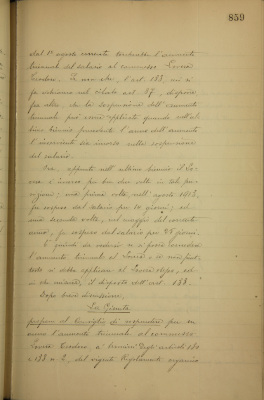 859
dal 1° agosto corrente
triennale del salario al commesso Lavia
Teodoro. È vero che l'art. 133, cui si
fa richiamo nel citato art. 37, dispone
fra altro, che la sospensione dell'aumento
triennale può venir applicata quando nell'ul-
timo triennio precedente l'anno dell'aumento
l'inserviente sia incorso nella sospensione
del salario.
Ora, appunto nell'ultimo triennio il La-
via è incorso per ben due volte in tale pu-
nizione: una prima volta, nell'agosto
fu sospeso dal salario per 10 giorni; ed
una seconda volta, nel maggio del corrente
anno, fu sospeso dal salario per 25 giorni.
È quindi da vedersi se si possa concedere
l'aumento triennale al Lavia o se non piut-
tosto si debba applicare al Lavia stesso, ed
in che misura, il disposto dell'art. 133.
Dopo breve discussione,
La Giunta
propone al Consiglio di sospendere per un
anno l'aumento triennale al commesso
Lavia Teodoro, a termini degli articoli
e 133 n. 2, del vigente Regolamento organico